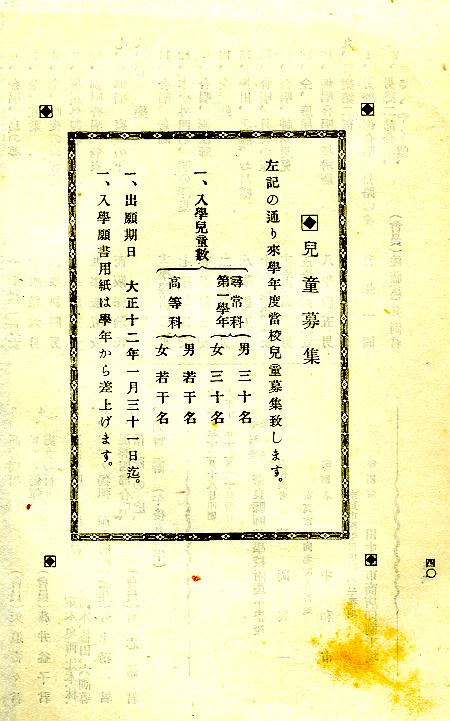 兒童募集
左記の通り來學年度當校兒童募集致します。
一、入學兒童數
尋常科第一學年
男 三十名
女 三十名
高等科
男 若干名
女 若干名
一、出願期日 大正十二年一月三十一日迄。
一、入學願書用紙は學年から差上げます。
四〇